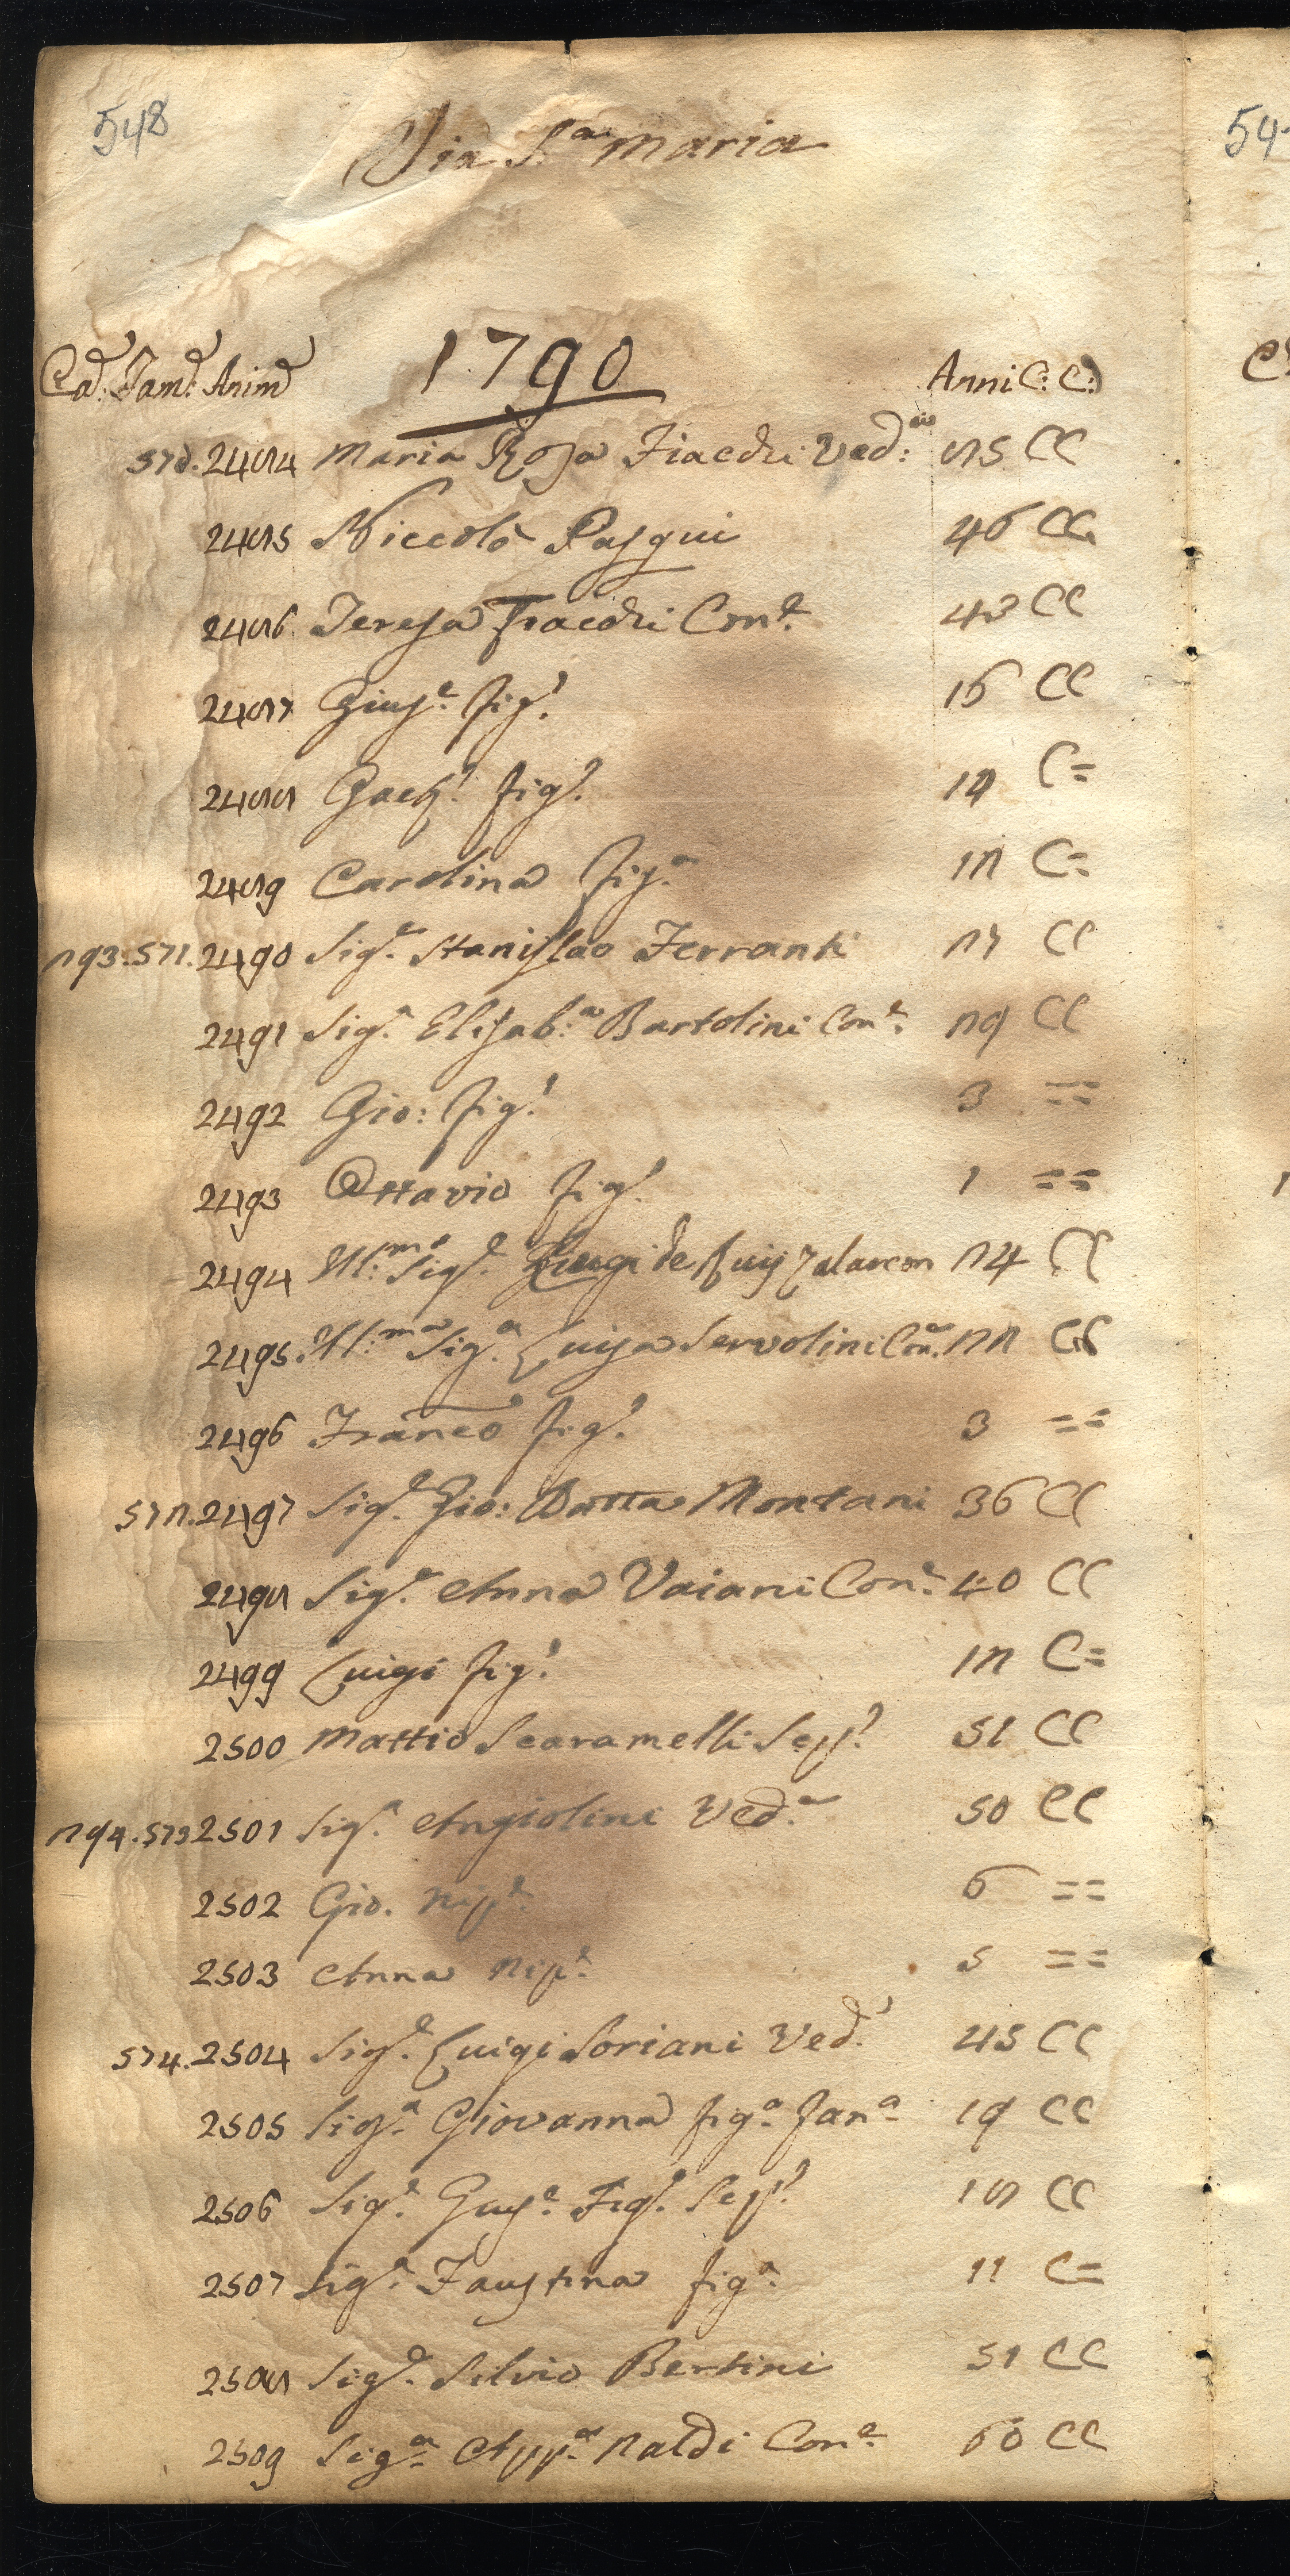 548
Via S.ta Maria
1790
Cad. Famd. Animd Anni C: C:
570. 2484 Maria Rosa Fiacchi Ved:a 85 CC
2485 Niccolò Pasqui 46 CC
2486 Teresa Fiacchi Con.e 43 CC
2487 Gius.e fig.o 16 CC
2488 Gaet.o fig.o 14 C=
2489 Carolina fig.a 12 C=
293. 571. 2490 Sig.r Stanislao Ferranti 27 CC
2491 Sig.a Elisab:a Bartolini Con.e 29 CC
2492 Gio: fig.o 3 ==
2493 Ottavio fig.o 1 ==
2494 Ill:mo Sig.r Luigi de 24 CC
2495. Ill:ma Sig.a Luisa Servolini Con. 22 CC
2496 Franco fig.o 3 ==
572. 2497 Sig.r Gio: Batta Montani 36 CC
2498 Sig.a Anna Vaiani Con.e 40 CC
2499 Luigi fig.o 12 C=
2500 Mattio Scaramelli Ser.o 51 CC
294. 573 2501 Sig.a Angiolini Ved.a 50 CC
2502 Gio. Nip.e 6 ==
2503 Anna Nip.e 5 ==
574. 2504 Sig.r Luigi Soriani Ved.o 45 CC
2505 Sig.a Giovanna fig.a 19 CC
2506 Sig.r Gius.e Fig.o 18 CC
2507 Sig.a Faustina fig.a 11 C=
2508 Sig.r Silvio Bertini 51 CC
2509 Sig.a App.a Naldi Con.e 60 CC